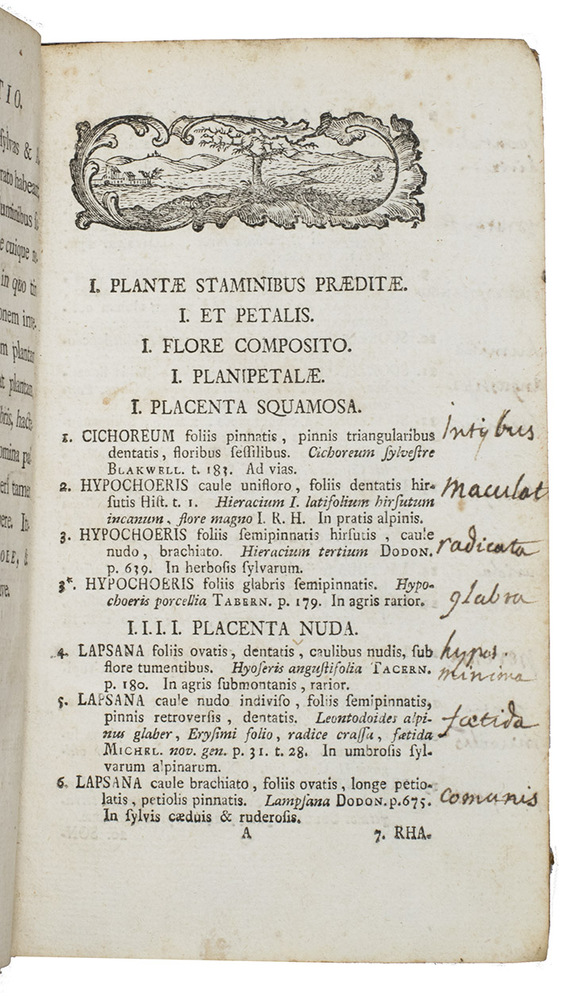 TIO.
sylvas &
rato habeam
in quo
I. PLANTÆ STAMINIBUS PRÆDITÆ.
I. ET PETALIS.
I. FLORE COMPOSITO.
I. PLANIPETALÆ.
I. PLACENTA SQUAMOSA.
1. CICHOREUM foliis pinnatis, pinnis triangularibus Intybus
dentatis, floribus sessilibus. Cichoreum sylvestre
BLAKWELL. t. 183. Ad vias.
2. HYPOCHOERIS caule unifloro, foliis dentatis hir- maculat
sutis Hist. t. 1. Hieracium I. latifolium hirsutum
incanum, flore magno I. R. H. In pratis alpinis.
3. HYPOCHOERIS foliis semipinnatis hirsutis, caule radicata
nudo, brachiato. Hieracium tertium DODON.
p. 639. In herbosis sylvarum.
3*. HYPOCHOERIS foliis glabris semipinnatis. Hypo- glabra
choeris porcellia TABERN. p. 179. In agris rarior.
I.I.I.I. PLACENTA NUDA.
4. LAPSANA foliis ovatis, dentatis, caulibus nudis, sub hyos.
flore tumentibus. Hyoseris angustifolia TACERN. minima
p. 180. In agris submontanis, rarior.
5. LAPSANA caule nudo indiviso, foliis semipinnatis,
pinnis retroversis, dentatis. Leontodoides alpi- fœtida
nus glaber, Erysimi folio, radice crassa, fœtida
MICHEL. nov. gen. p. 31. t. 28. In umbrosis syl-
varum alpinarum.
6. LAPSANA caule brachiato, foliis ovatis, longe petio- comunis
latis, petiolis pinnatis. Lampsana DODON. p. 675.
In sylvis cæduis & ruderosis.
A 7. RHA-